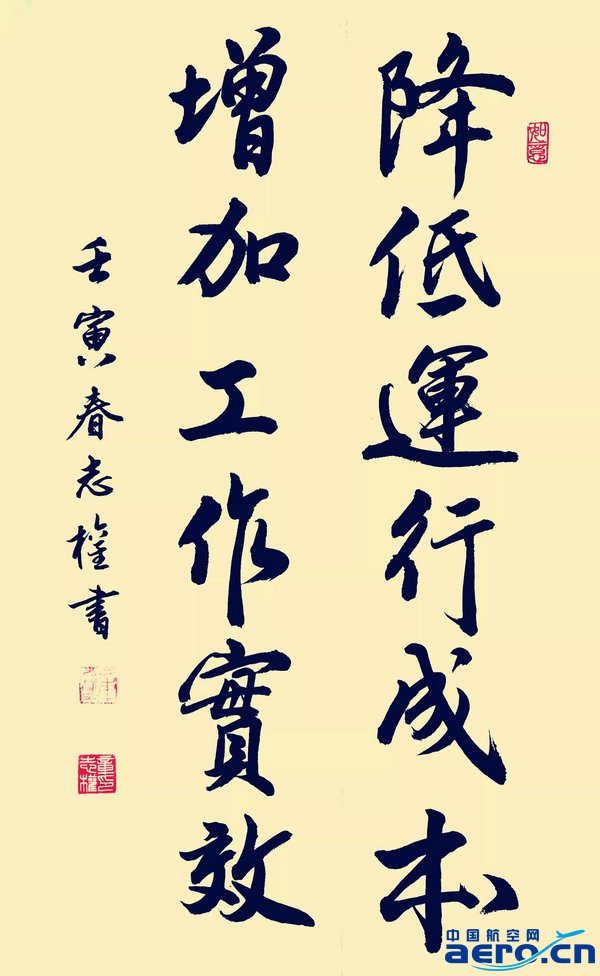 降低運行成本
增加工作實效
壬寅春志權書
如意
童志權印
中国航空网
aero.cn